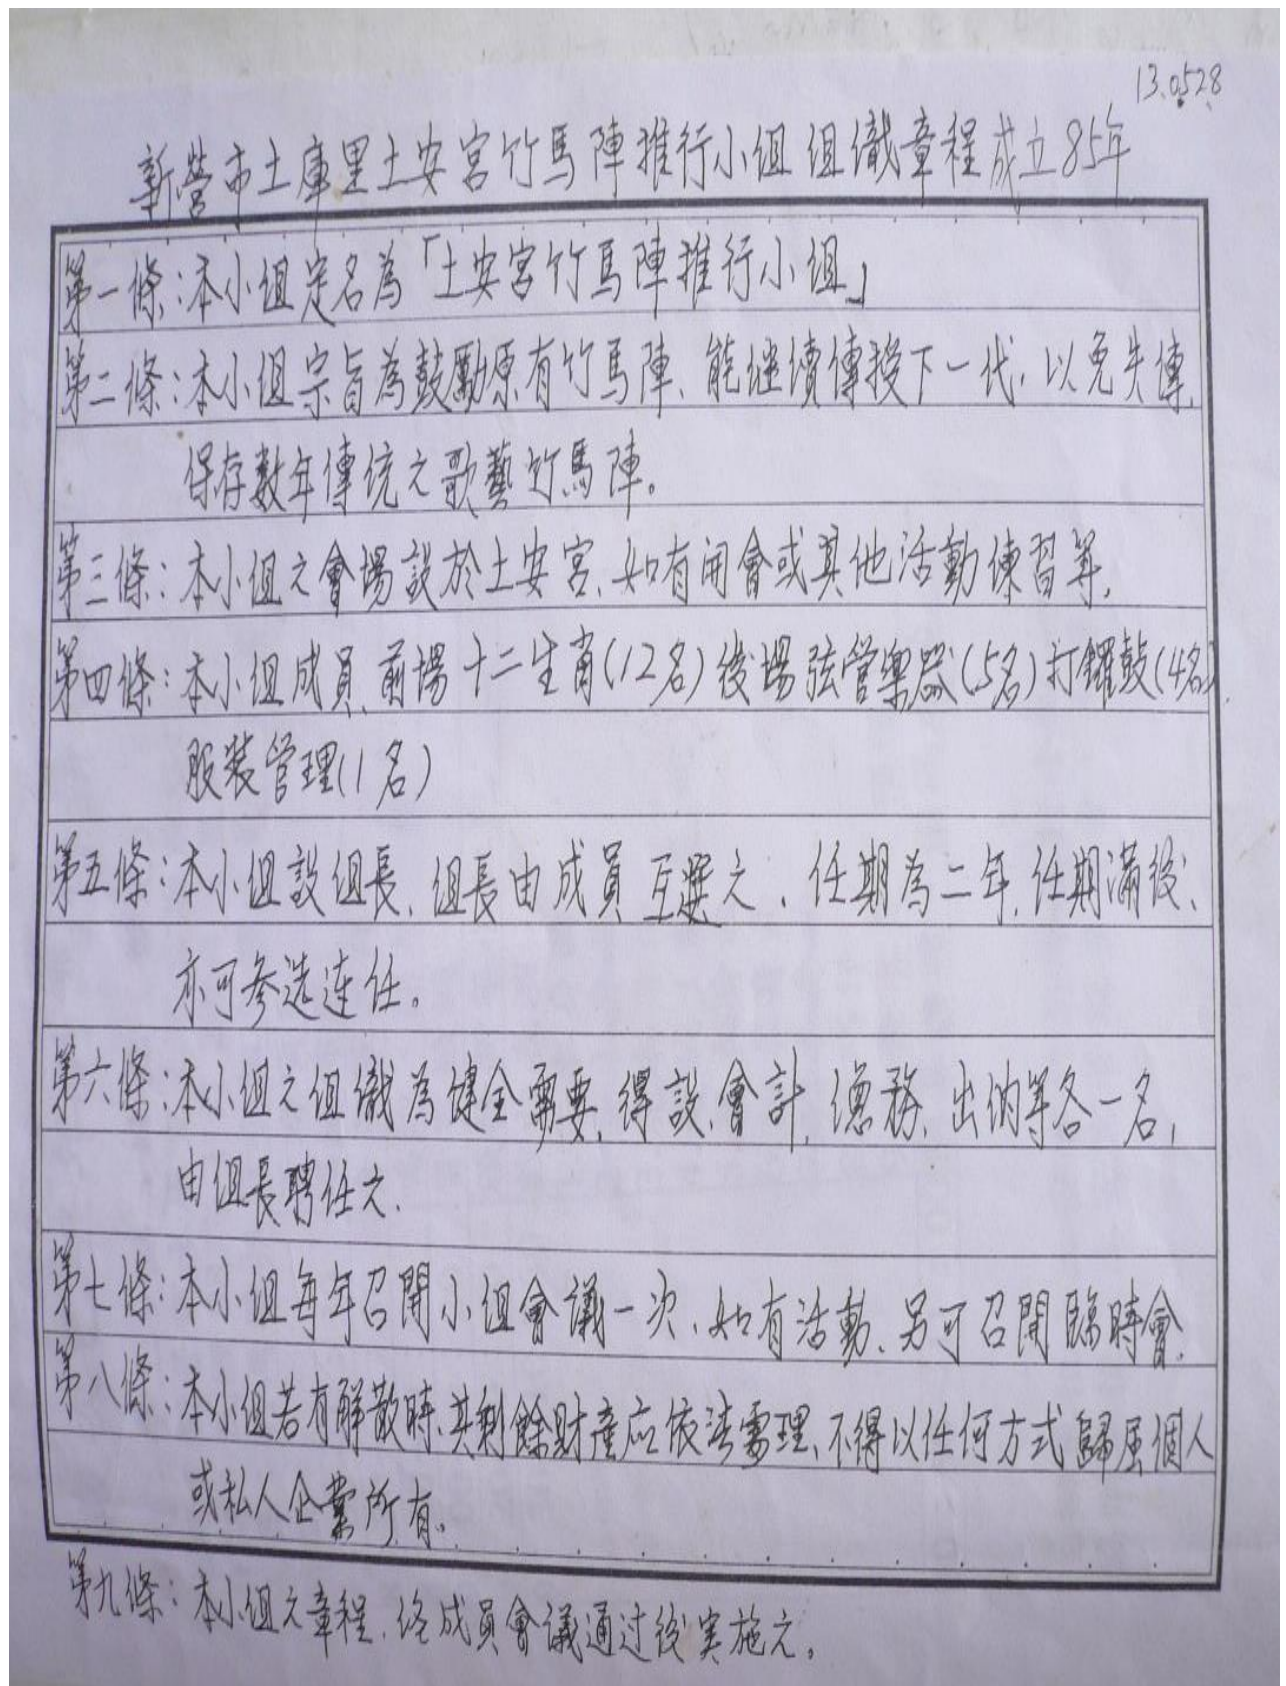 13.0528
新營市土庫里土安宮竹馬陣推行小組組織章程成立85年
第一條:本小組定名為「土安宮竹馬陣推行小組」
第二條:本小組宗旨為鼓勵原有竹馬陣、能继續傳授下一代,以免失傳,
保存數年傳统之歌藝竹馬陣。
第三條:本小組之會場設於土安宮、如有開會或其他活動練習等,
第四條:本小組成員、前場十二生肖(12名)後場弦管樂器(5名)打鑼鼓(4名)
服裝管理(1名)
第五條:本小組設組長、組長由成員互選之、任期為二年,任期滿後、
亦可參选連任。
第六條:本小組之組織為健全需要,得設、會計、總務、出納等各一名,
由組長聘任之.
第七條:本小組每年召開小組會議一次、如有活動、另可召開臨時會.
第八條:本小組若有解散時、其剩餘財產应依法處理、不得以任何方式歸屬個人
或私人企業所有。
第九條:本小組之章程、经成員會議通过後实施之。